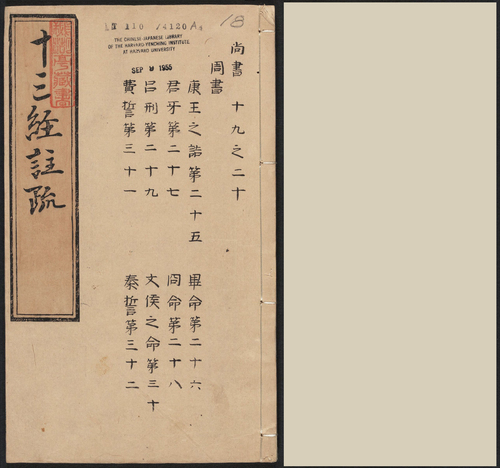 18
THE CHINESE-JAPANESE LIBRARY
OF THE HARVARD-YENCHING INSTITUTE
AT HARVARD UNIVERSITY
SEP 9 1955
尚書 十九之二十
周書
康王之誥第二十五 畢命第二十六
君牙第二十七 冏命第二十八
呂刑第二十九 文侯之命第三十
費誓第三十一 秦誓第三十二
十三經註疏